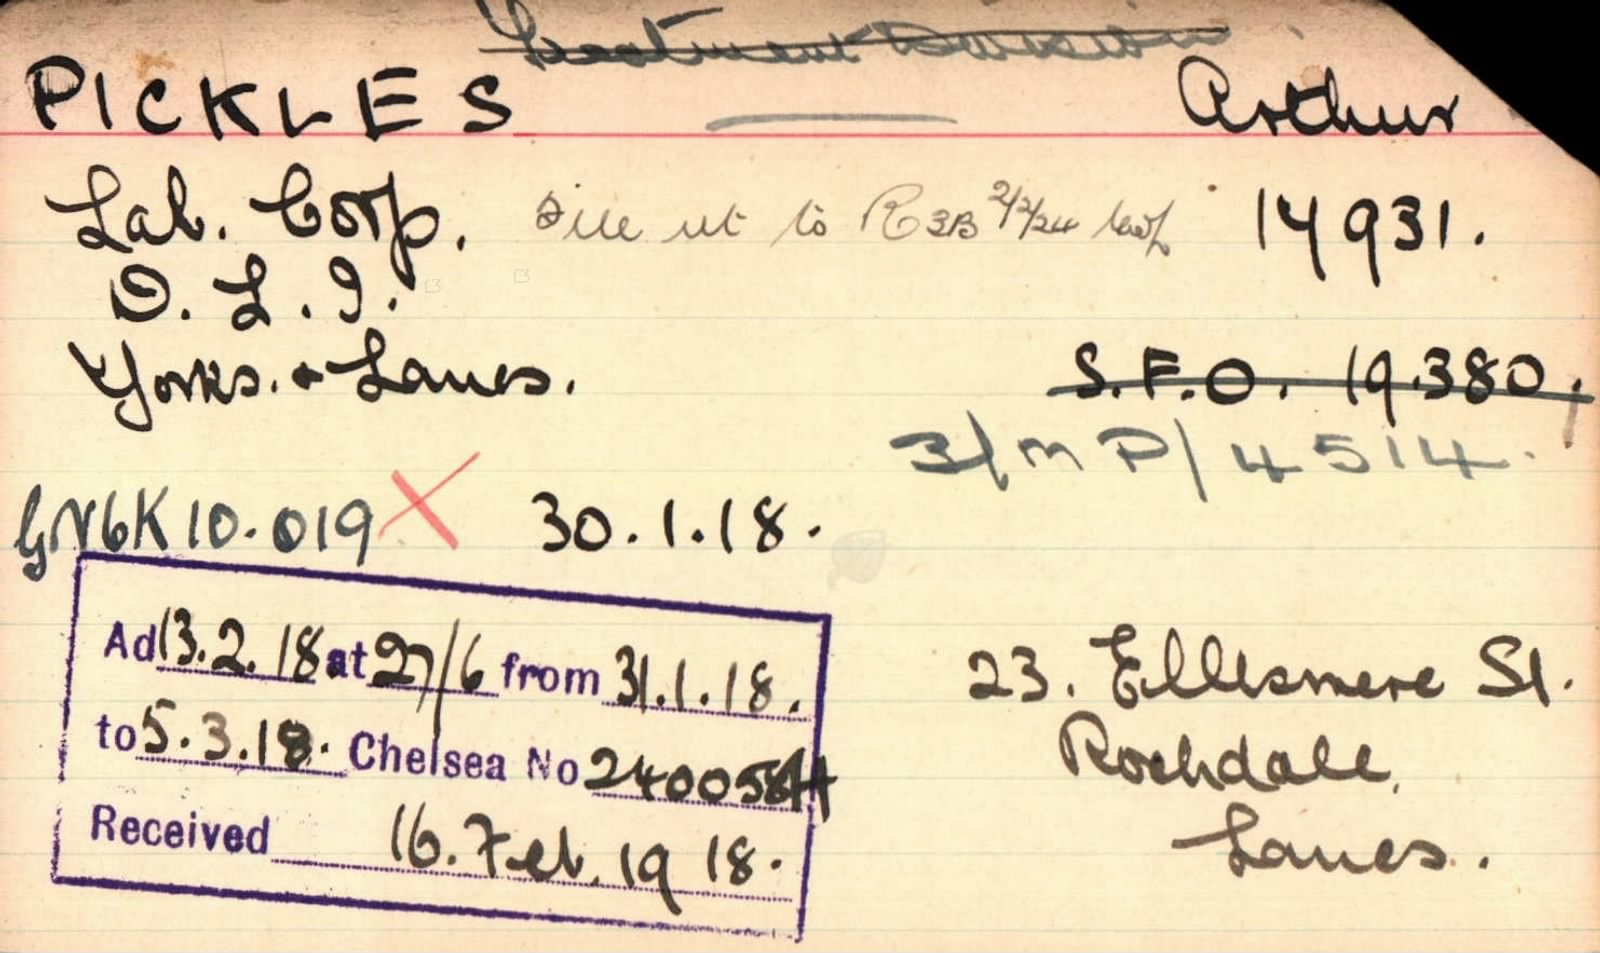 Treatment Division
PICKLES Arthur
Lab. Corp. File ut to R3B 2/2/24 14931.
D. L. I.
Yorks. & Lancs. S.F.O. 19.380.
3/MP/4514.
10.019 X 30.1.18.
Ad 13.2.18 at 27/6 from 31.1.18.
to 5.3.18. Chelsea No 240058
Received 16. Feb. 1918.
23. Ellesmere St.
Rochdale,
Lancs.